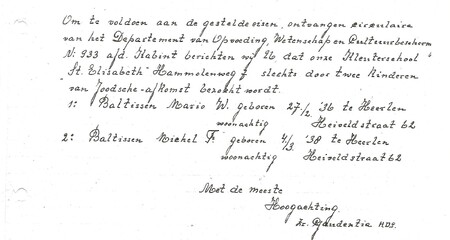 Om te voldoen aan de gestelde eisen, ontvangen circulaire
van het Departement van Opvoeding, Wetenschap en Cultuurbescherm
N: 933 a/d. Kabint berichten wij U dat onze Kleuterschool
"St. Elisabeth" Hammolenweg 7 slechts door twee Kinderen
van Joodsche-afkomst bezocht wordt.
1: Baltissen Mario W. geboren 27/2. '36 te Heerlen
woonachtig Heiveldstraat 62
2: Baltissen Michel F. geboren 4/3 '38 te Heerlen
woonachtig Heiveldstraat 62
Met de meeste
Hoogachting
Zr. Gaudentia